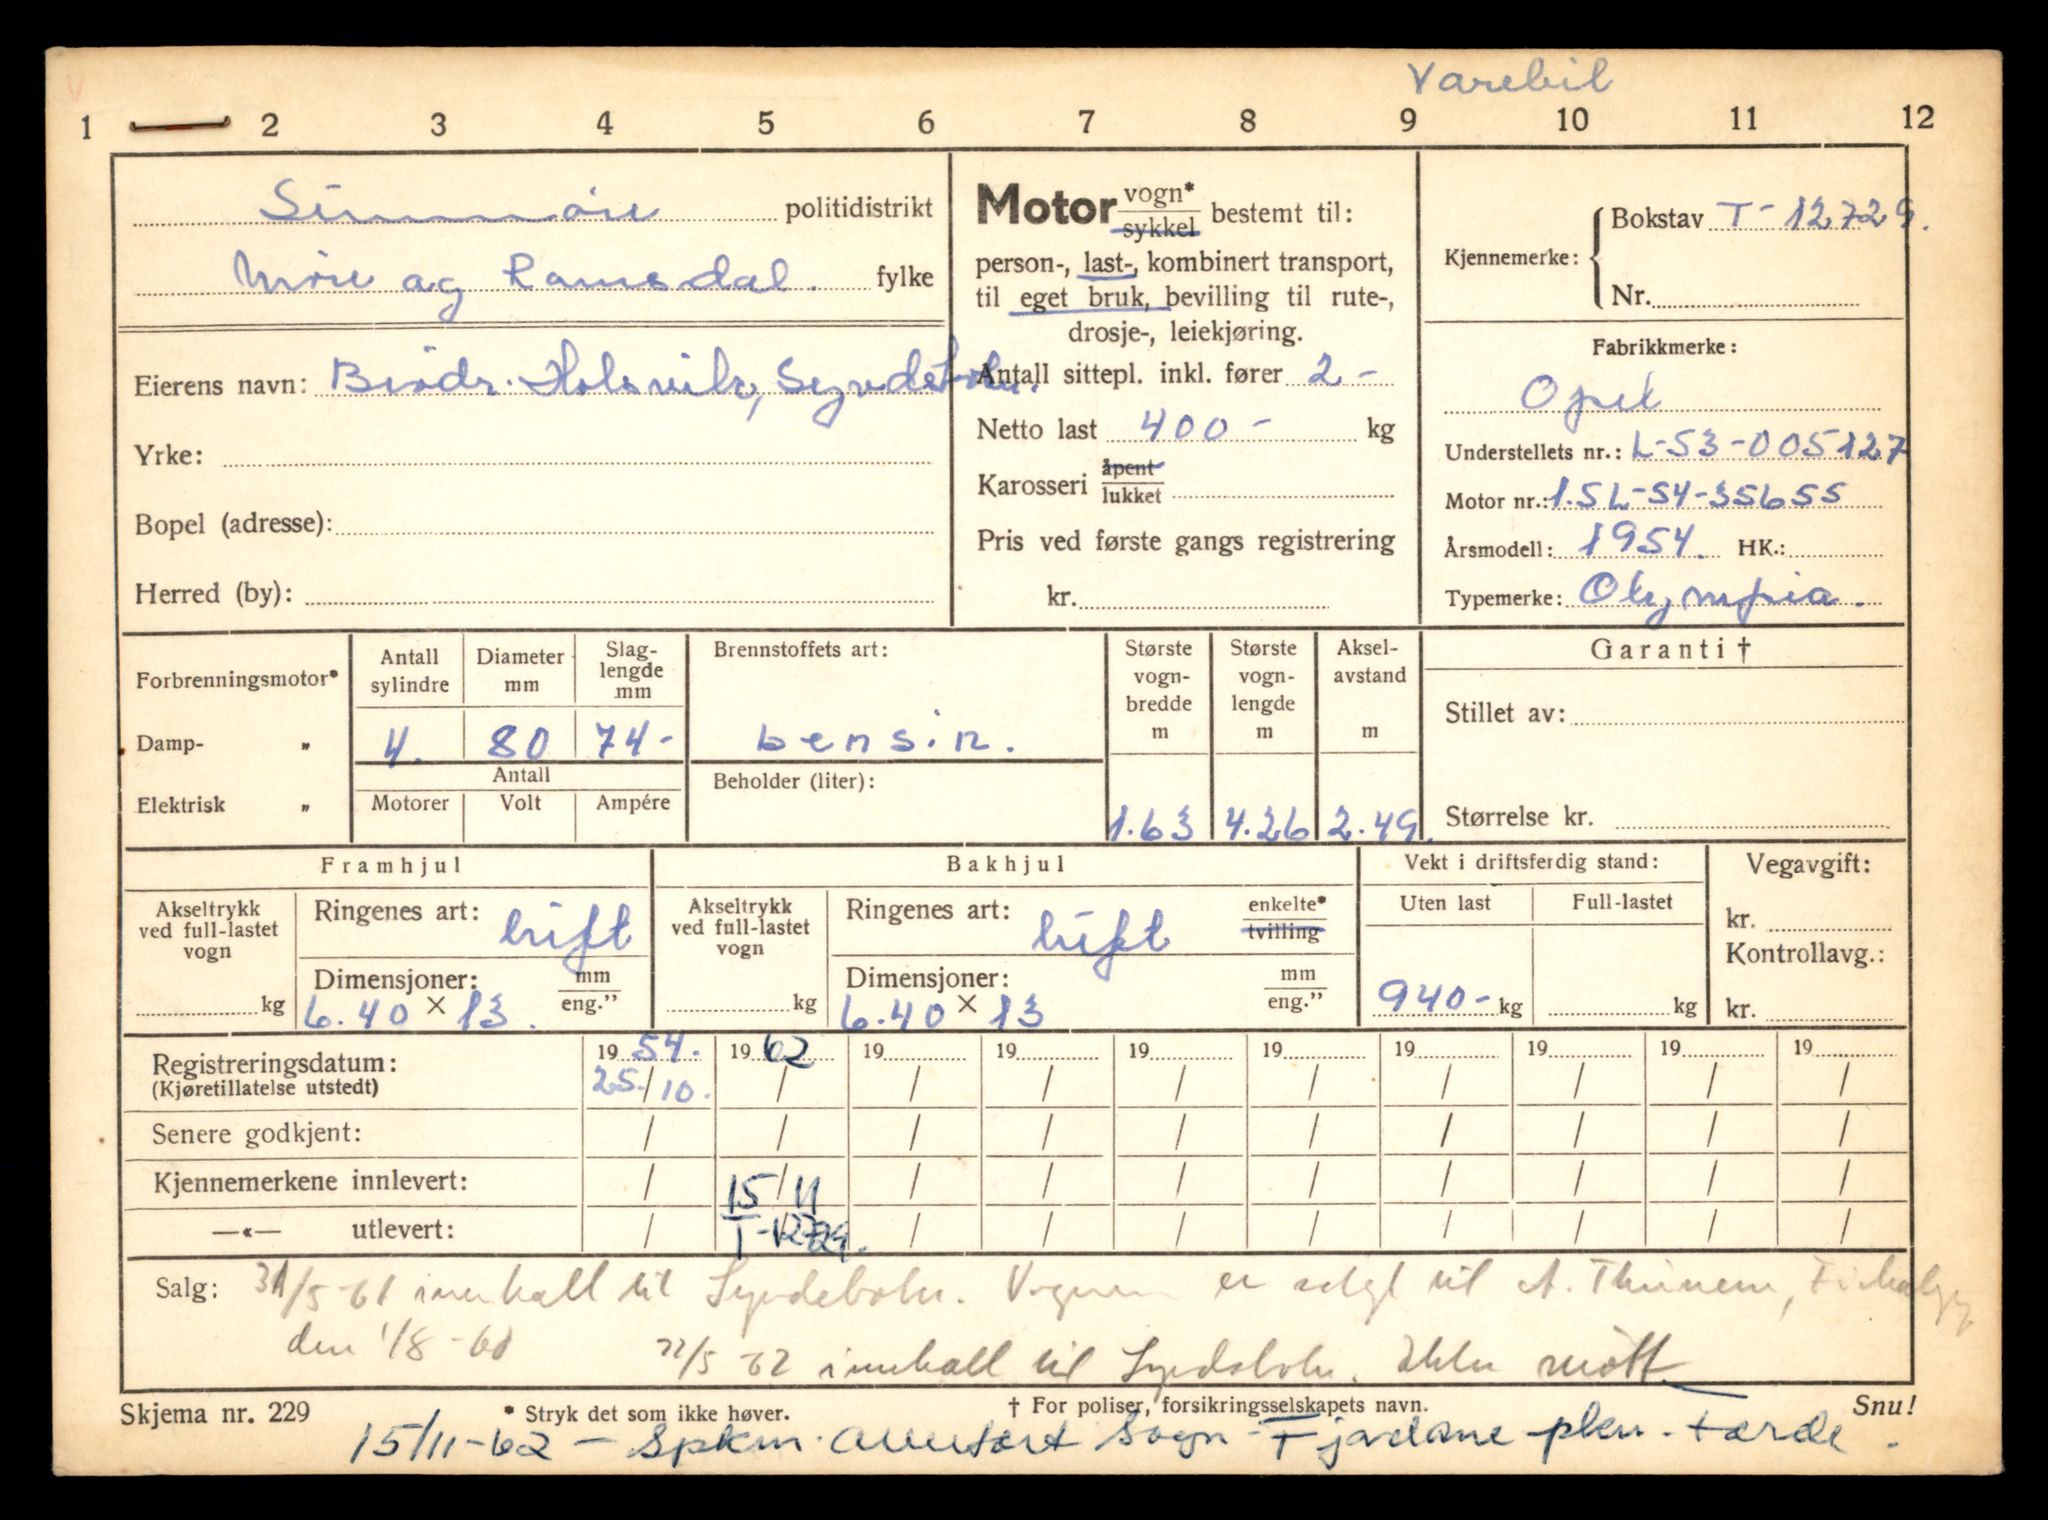 Varebil
1 2 3 4 5 6 7 8 9 10 11 12
Sunnmöre politidistrikt
Möre og Romsdal. fylke
Eierens navn: Brödr. Holsvik, Syvdsbotn.
Yrke:
Bopel (adresse):
Herred (by):
Motor vogn* / sykkel bestemt til:
person-, last-, kombinert transport,
til eget bruk, bevilling til rute-,
drosje-, leiekjøring.
Antall sittepl. inkl. fører 2 -
Netto last 400 - kg
Karosseri åpent / lukket
Pris ved første gangs registrering
kr.
Kjennemerke: Bokstav T - 12729.
Nr.
Fabrikkmerke:
Opel
Understellets nr.: L-53-005127
Motor nr.: 1.5L-54-35655
Årsmodell: 1954. HK.:
Typemerke: Olympia.
Forbrenningsmotor*
Damp- „
Elektrisk „
Antall sylindre Diameter mm Slag-lengde mm
4. 80 74-
Antall
Motorer Volt Ampére
Brennstoffets art:
bensin.
Beholder (liter):
Største vogn-bredde m Største vogn-lengde m Aksel-avstand m
1.63 4.26 2.49.
Garanti †
Stillet av:
Størrelse kr.
Framhjul
Akseltrykk ved full-lastet vogn
kg
Ringenes art: luft
Dimensjoner: mm / eng."
6.40 × 13.
Bakhjul
Akseltrykk ved full-lastet vogn
kg
Ringenes art: luft enkelte* / tvilling
Dimensjoner: mm / eng."
6.40 × 13
Vekt i driftsferdig stand:
Uten last Full-lastet
940 - kg kg
Vegavgift:
kr.
Kontrollavg.:
kr.
Registreringsdatum: 19 54. 19 62 19 19 19 19 19 19 19 19
(Kjøretillatelse utstedt) 25./10. / / / / / / / / /
Senere godkjent: / / / / / / / / / /
Kjennemerkene innlevert: / 15/11 / / / / / / / /
—«— utlevert: / T-12729. / / / / / / / /
Salg: 31/5-61 innkall til Syvdebotn. Vognen er solgt til A. Thunem,
den 1/8-60 22/5 62 innkall til Syvdsbotn. Ikke mött
Skjema nr. 229 * Stryk det som ikke høver. † For poliser, forsikringsselskapets navn. Snu!
15/11-62 - Spkm. overført Sogn - Fjordane pkn. Førde.